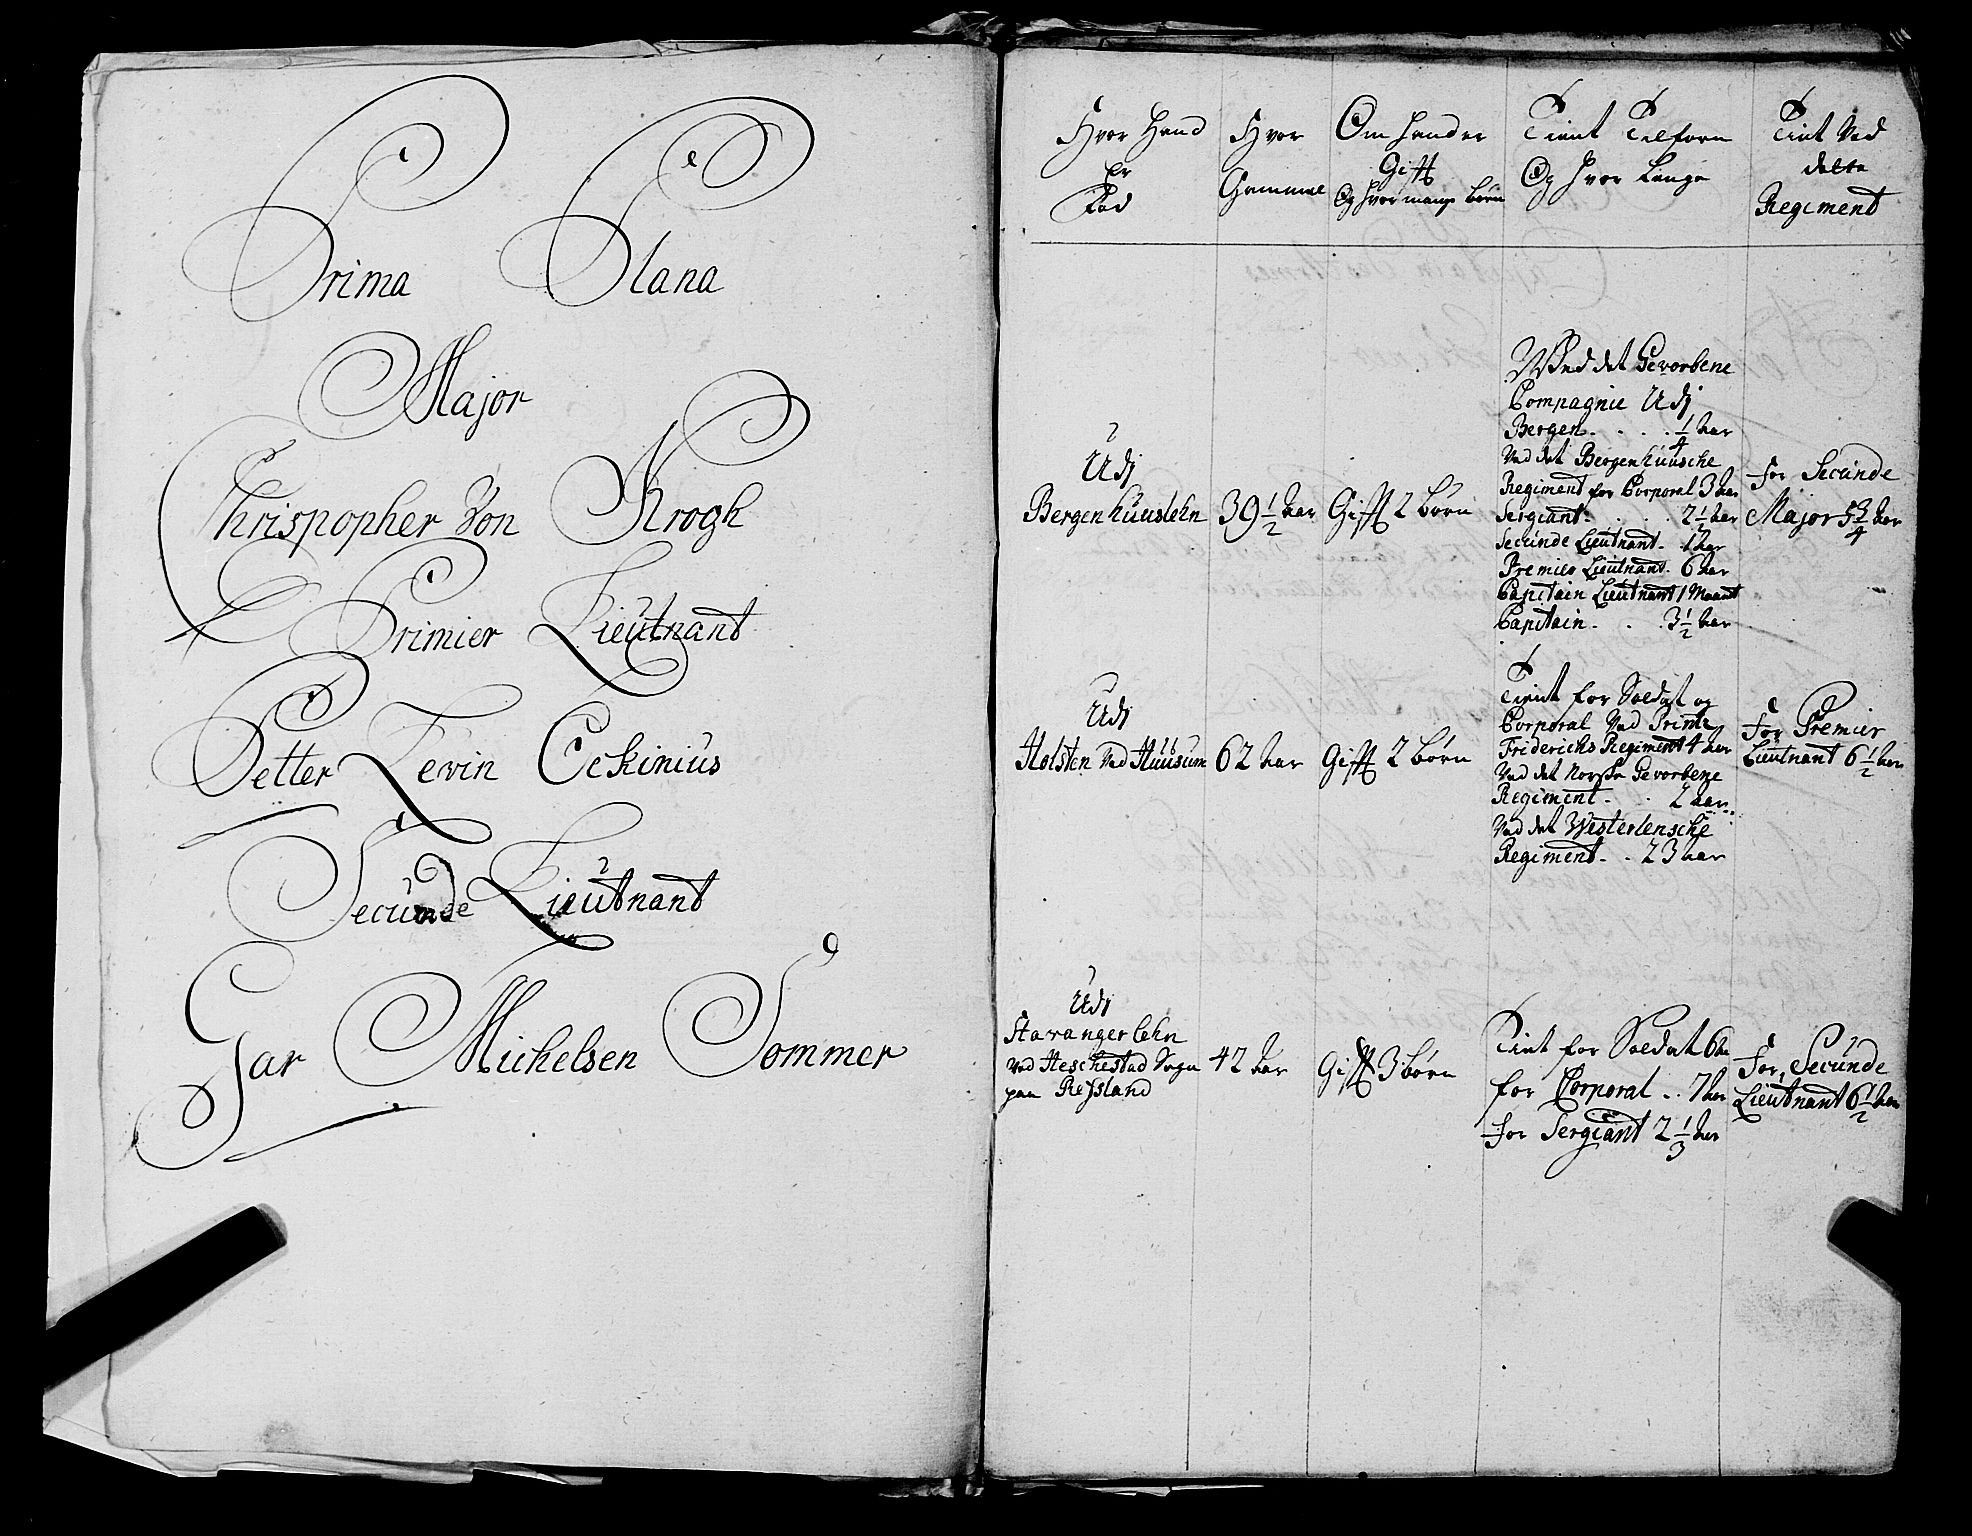 Prima Plana
Major
Chrispopher Von Krogh
Primier Lieutnant
Petter Levin Cekinius
Secunde Lieutnant
Gar Michelsen Sommer
Hvor Hand
Er
Föd
Hvor
Gammel
Om Hand er
Gifft
Og hvor mange börn
Tient Tilforn
Og hvor Lenge
Tient Ved
dette
Regiment
Udj
Bergenhuuslehn
39 1/2 aar
Gifft 2 börn
Ved det Gevorbene
Compagnie Udj
Bergen . . . . 1/4 aar
Ved det Bergenhuusche
Regiment for Corporal 3 aar
Sergiant . . . . 2 1/2 aar
Secunde Lieutnant . 1 aar
Premier Lieutnant . 6 aar
Capitain Lieutnant 1 Maant
Capitain . . . 3 1/2 aar
for Secunde
Major 5 3/4 aar
Udj
Holsten Ved Huusum
62 aar
Gifft 2 börn
Tient for Soldat og
Corporal Ved Printz
Friderichs Regiment 4 aar
Ved det Norske Gevorbene
Regiment . . 2 aar
Ved det Westerlensche
Regiment . . 23 aar
for Premier
Lieutnant 6 1/2 aar
Udj
Stavanger lehn
Ved Heschestad Sogn
paa Refsland
42 aar
Gifft 3 börn
Tient for Soldat 6 aar
for Corporal . . 7 aar
for Sergiant 2 1/3 aar
for Secunde
Lieutnant 6 1/2 aar